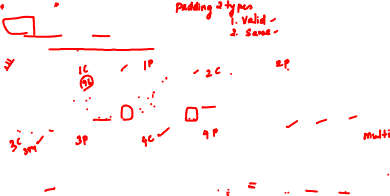 Padding 2 types
1. Valid -
2. Same -
1C 1P 2C 2P
96
3C 3P 4C 4P
multi